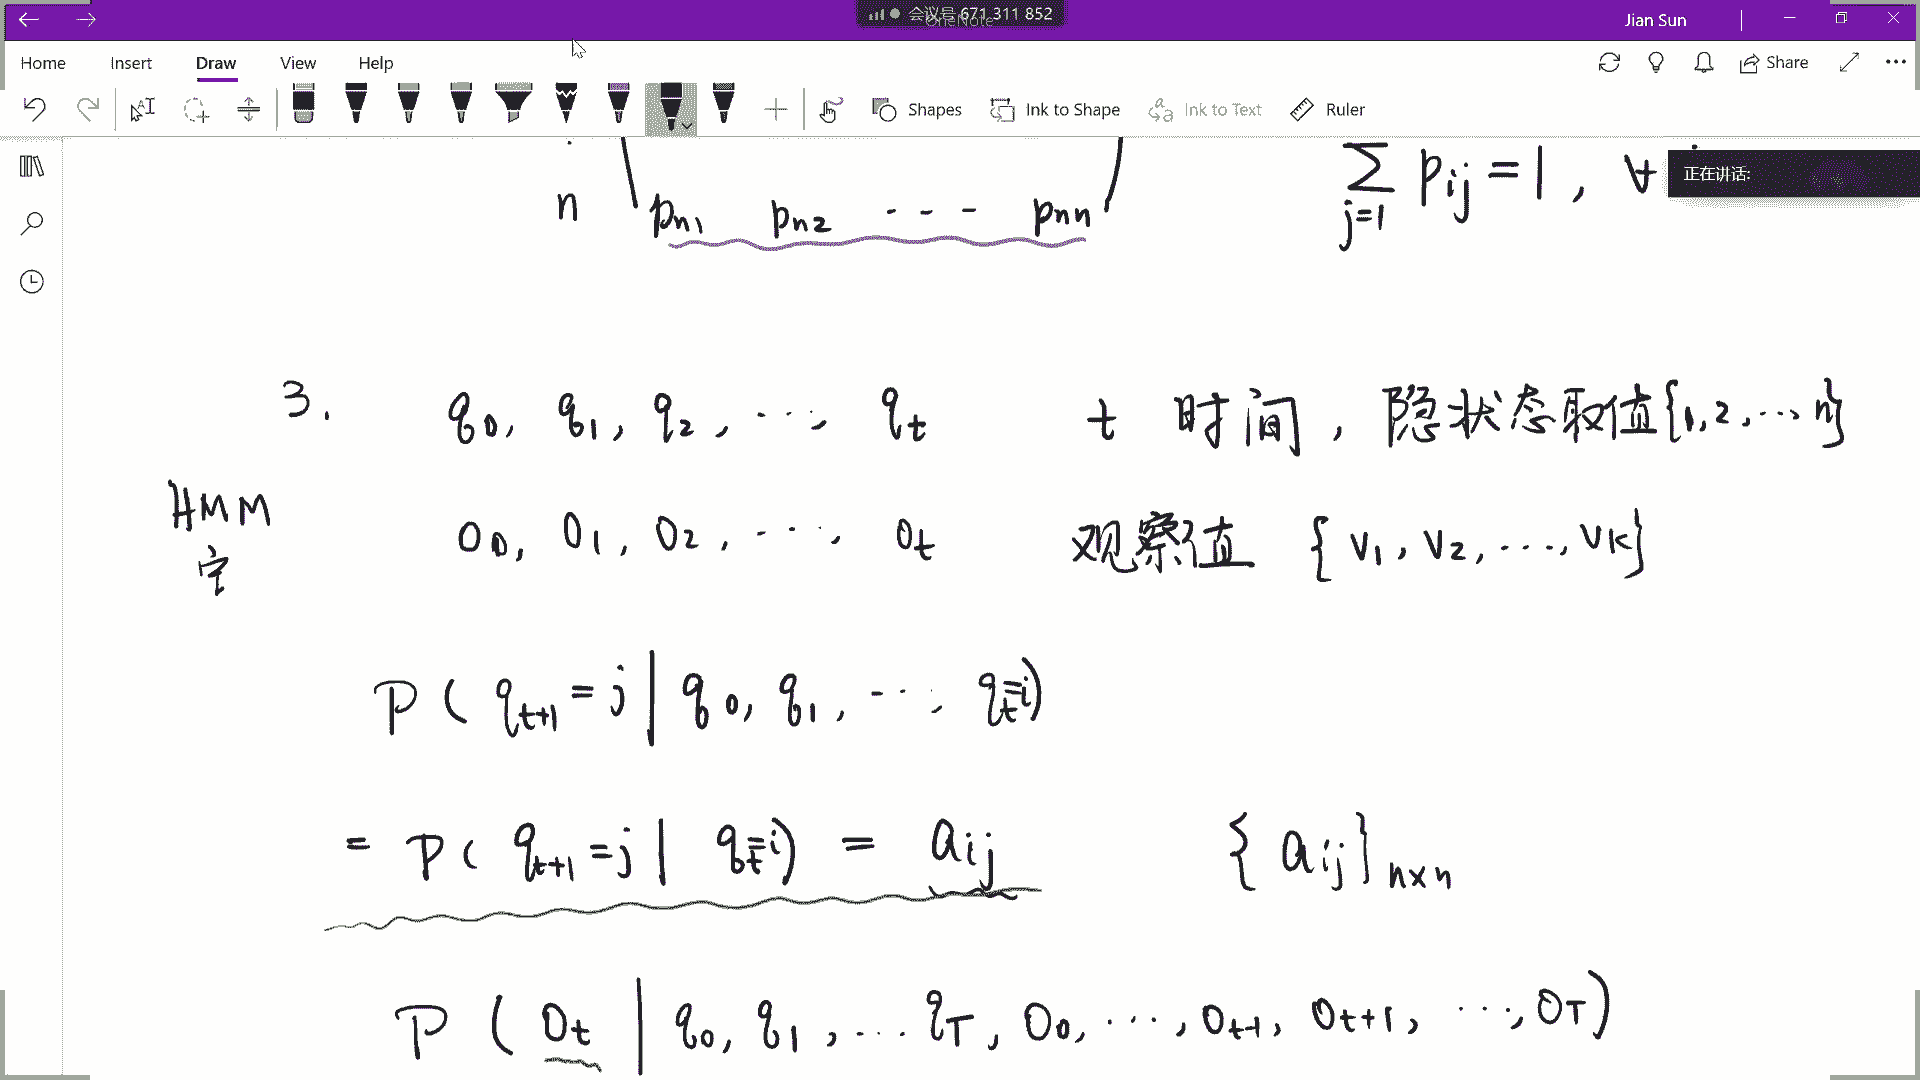 会议号 671 311 852
OneNote
Jian Sun
Home Insert Draw View Help
Share
Shapes Ink to Shape Ink to Text Ruler
正在讲话:
n p_{n1} p_{n2} --- p_{nn}
\sum_{j=1} p_{ij} = 1, ∀
3. q_0, q_1, q_2, ..., q_t t 时间, 隐状态取值{1, 2, ..., n}
HMM
定
o_0, o_1, o_2, ..., o_t 观察值 {v_1, v_2, ..., v_K}
P(q_{t+1}=j | q_0, q_1, ..., q_t=i)
= P(q_{t+1}=j | q_t=i) = a_{ij} {a_{ij}}_{n×n}
P(o_t | q_0, q_1, ... q_T, o_0, ..., o_{t-1}, o_{t+1}, ..., o_T)